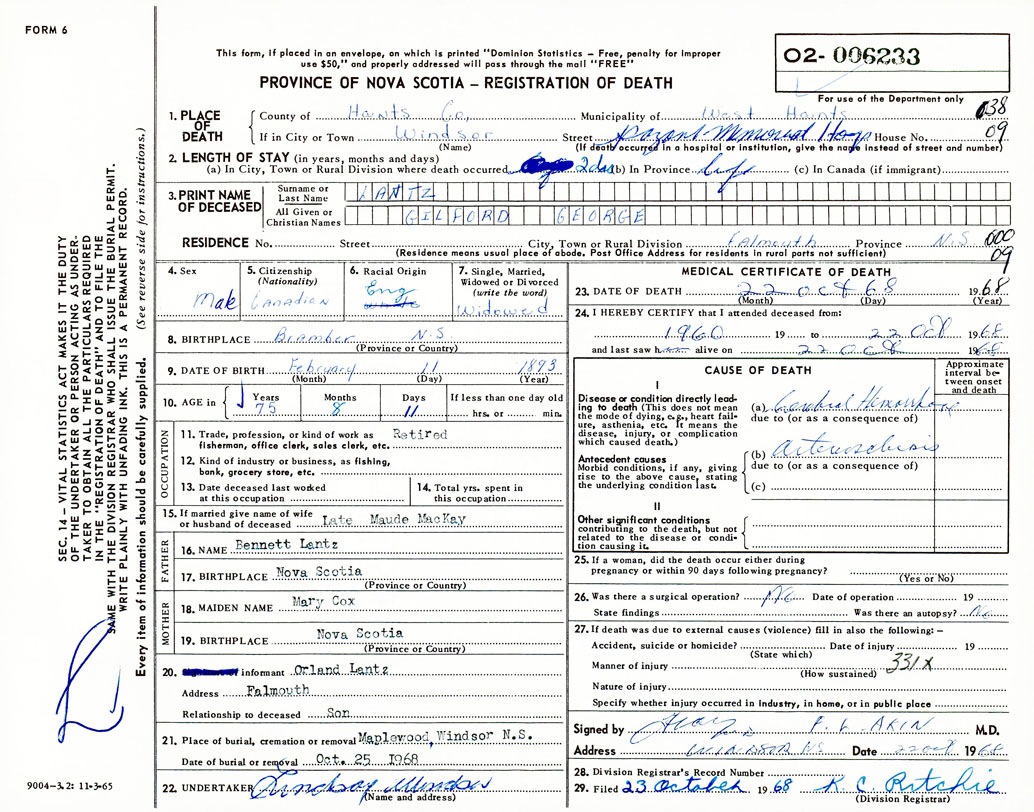 FORM 6
This form, if placed in an envelope, on which is printed "Dominion Statistics – Free, penalty for improper
use $50," and properly addressed will pass through the mail "FREE"
PROVINCE OF NOVA SCOTIA – REGISTRATION OF DEATH
02- 006233
For use of the Department only
1. PLACE OF DEATH
County of Hants Co. Municipality of West Hants 038
If in City or Town Windsor Street Payzant Memorial Hosp House No. 09
(Name) (If death occurred in a hospital or institution, give the name instead of street and number)
2. LENGTH OF STAY (in years, months and days)
(a) In City, Town or Rural Division where death occurred 2 das (b) In Province Life (c) In Canada (if immigrant)
3. PRINT NAME OF DECEASED
Surname or Last Name LANTZ
All Given or Christian Names GILFORD GEORGE
RESIDENCE No. Street City, Town or Rural Division Falmouth Province N.S. 000
(Residence means usual place of abode. Post Office Address for residents in rural parts not sufficient) 09
4. Sex Male
5. Citizenship (Nationality) Canadian
6. Racial Origin Eng
7. Single, Married, Widowed or Divorced (write the word) Widowed
8. BIRTHPLACE Bramber N.S
(Province or Country)
9. DATE OF BIRTH February 11 1893
(Month) (Day) (Year)
10. AGE in Years 75 Months 8 Days 11 If less than one day old hrs. or min.
OCCUPATION
11. Trade, profession, or kind of work as fisherman, office clerk, sales clerk, etc. Retired
12. Kind of industry or business, as fishing, bank, grocery store, etc.
13. Date deceased last worked at this occupation
14. Total yrs. spent in this occupation
15. If married give name of wife or husband of deceased Late Maude MacKay
FATHER
16. NAME Bennett Lantz
17. BIRTHPLACE Nova Scotia
(Province or Country)
MOTHER
18. MAIDEN NAME Mary Cox
19. BIRTHPLACE Nova Scotia
(Province or Country)
20. informant Orland Lantz
Address Falmouth
Relationship to deceased Son
21. Place of burial, cremation or removal Maplewood, Windsor N.S.
Date of burial or removal Oct. 25 1968
22. UNDERTAKER Lindsay Windsor
(Name and address)
MEDICAL CERTIFICATE OF DEATH
23. DATE OF DEATH 22 oct 68 1968
(Month) (Day) (Year)
24. I HEREBY CERTIFY that I attended deceased from:
1960 19 to 22 Oct 1968
and last saw h alive on 22 oct 1968
CAUSE OF DEATH
Approximate interval between onset and death
I
Disease or condition directly leading to death (This does not mean the mode of dying, e.g., heart failure, asthenia, etc. It means the disease, injury, or complication which caused death.)
(a) Cerebral Hemorrhage
due to (or as a consequence of)
Antecedent causes
Morbid conditions, if any, giving rise to the above cause, stating the underlying condition last.
(b) Arterosclerosis
due to (or as a consequence of)
(c)
II
Other significant conditions
contributing to the death, but not related to the disease or condition causing it.
25. If a woman, did the death occur either during
pregnancy or within 90 days following pregnancy?
(Yes or No)
26. Was there a surgical operation? No Date of operation 19
State findings Was there an autopsy? No
27. If death was due to external causes (violence) fill in also the following: –
Accident, suicide or homicide? Date of injury 19
(State which)
Manner of injury 331X
(How sustained)
Nature of injury
Specify whether injury occurred in industry, in home, or in public place
Signed by F. L. AKIN M.D.
Address WINDSOR NS Date 22 oct 1968
28. Division Registrar's Record Number
29. Filed 23 October 1968 K. C. Ritchie
(Division Registrar)
SEC. 14 – VITAL STATISTICS ACT MAKES IT THE DUTY
OF THE UNDERTAKER OR PERSON ACTING AS UNDERTAKER TO OBTAIN ALL THE PARTICULARS REQUIRED
IN THE "REGISTRATION OF DEATH" AND TO FILE THE
SAME WITH THE DIVISION REGISTRAR WHO SHALL ISSUE THE BURIAL PERMIT.
WRITE PLAINLY WITH UNFADING INK. THIS IS A PERMANENT RECORD.
Every item of information should be carefully supplied. (See reverse side for instructions.)
9004-3.2: 11-3-65